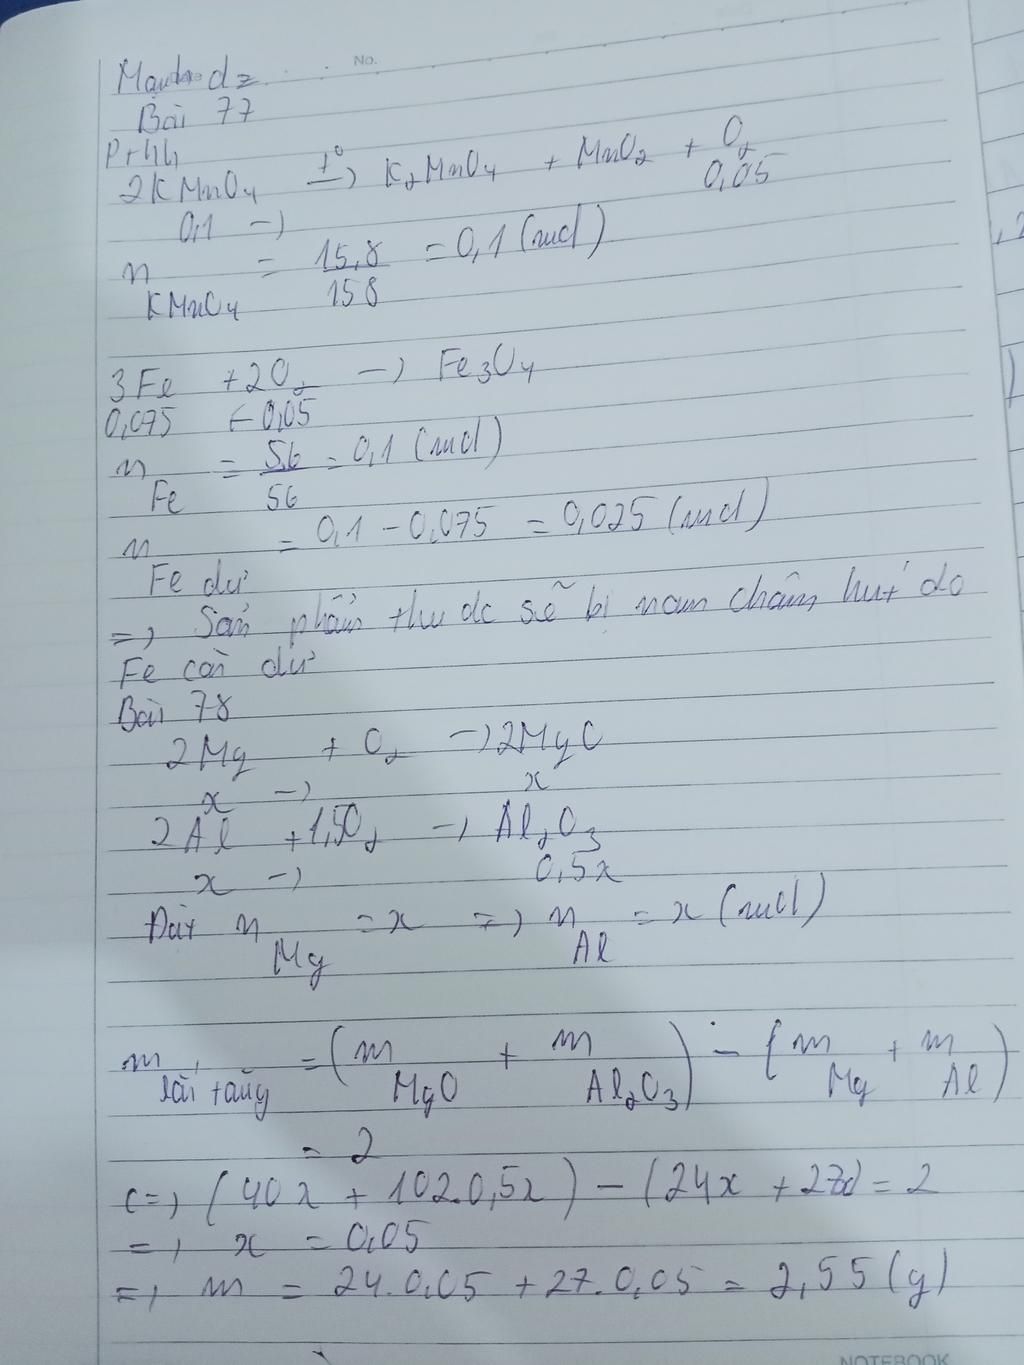 No.
dz
Bài 77
Pthh
2KMnO4 t° → K2MnO4 + MnO2 + O2
0,1 → 0,05
n KMnO4 = 15,8/158 = 0,1 (mol)
3Fe + 2O2 → Fe3O4
0,075 ← 0,05
n Fe = 5,6/56 = 0,1 (mol)
n Fe dư = 0,1 - 0,075 = 0,025 (mol)
=> Sản phẩm thu dc sẽ bị nam châm hút do
Fe còn dư
Bài 78
2Mg + O2 → 2MgO
x → x
2Al + 1,5O2 → Al2O3
x → 0,5x
Đặt n Mg = x => n Al = x (mol)
m rắn tăng = (m MgO + m Al2O3) - (m Mg + m Al)
= 2
<=> (40x + 102.0,5x) - (24x + 27x) = 2
=> x = 0,05
=> m = 24.0,05 + 27.0,05 = 2,55 (g)
NOTEBOOK